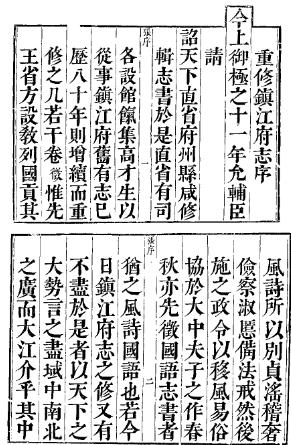 重修鎮江府志序
今上御極之十一年允輔臣
請
詔天下直省府州縣咸修
輯志書於是直省有司
張序
一
各設館餼集高才生以
從事鎮江府舊有志已
歷八十年則增續而重
修之凡若干卷徵惟先
王省方設教列國貢其
風詩所以別貞滛稽奢
儉察淑慝備法戒然後
施之政令以移風易俗
協於大中夫子之作春
秋亦先徵國語志書者
張序
二
猶之風詩國語也若今
日鎮江府志之修又有
不盡於是者以天下之
大勢言之盡域中南北
之廣而大江介乎其中